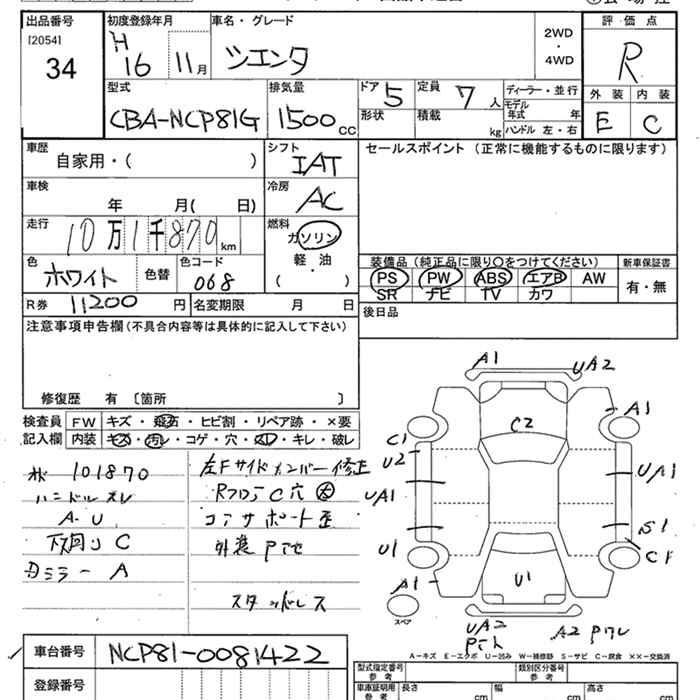 出品番号 初度登録年月 車名・グレード 評価点
[2054] H 16 11月 シエンタ 2WD・4WD R
34
型式 排気量 ドア 定員 ディーラー・並行 外装 内装
CBA-NCP81G 1500cc 5 7人 モデル年式 年 E C
形状 積載 kg ハンドル 左・右
車歴 シフト セールスポイント (正常に機能するものに限ります)
自家用・( ) IAT
車検 冷房
年 月( 日) AC
走行 燃料
10万1千870km ガソリン
軽油
( ・ )
色 色替 色コード 装備品 (純正品に限り○をつけてください) 新車保証書
ホワイト 068 PS PW ABS エアB AW 有・無
SR ナビ TV カワ
R券 11200円 名変期限 月 日 後日品
注意事項申告欄(不具合内容等は具体的に記入して下さい)
修復歴 有 〔箇所 〕
検査員 FW キズ・飛石・ヒビ割・リペア跡・×要
記入欄 内装 キズ・汚レ・コゲ・穴・スレ・キレ・破レ
101870 左Fサイドメンバー修正
ハンドルスレ RフロアC穴 大
A.U コアサポート歪
下廻りC 外装Pアセ
ミラーA
スタッドレス
A1 UA2
A1
C2
C1
U2 UA1
UA1
S1
U1 C1
A1 U1
スペア
UA2 A2 Pワレ
A-キズ E-エクボ U-凹み W-補修跡 S-サビ C-腐食 ××-交換済
車台番号 NCP81-0081422
登録番号
型式指定番号 類別区分番号
参考
車庫証明用 長さ 幅 高さ
参考 cm cm cm